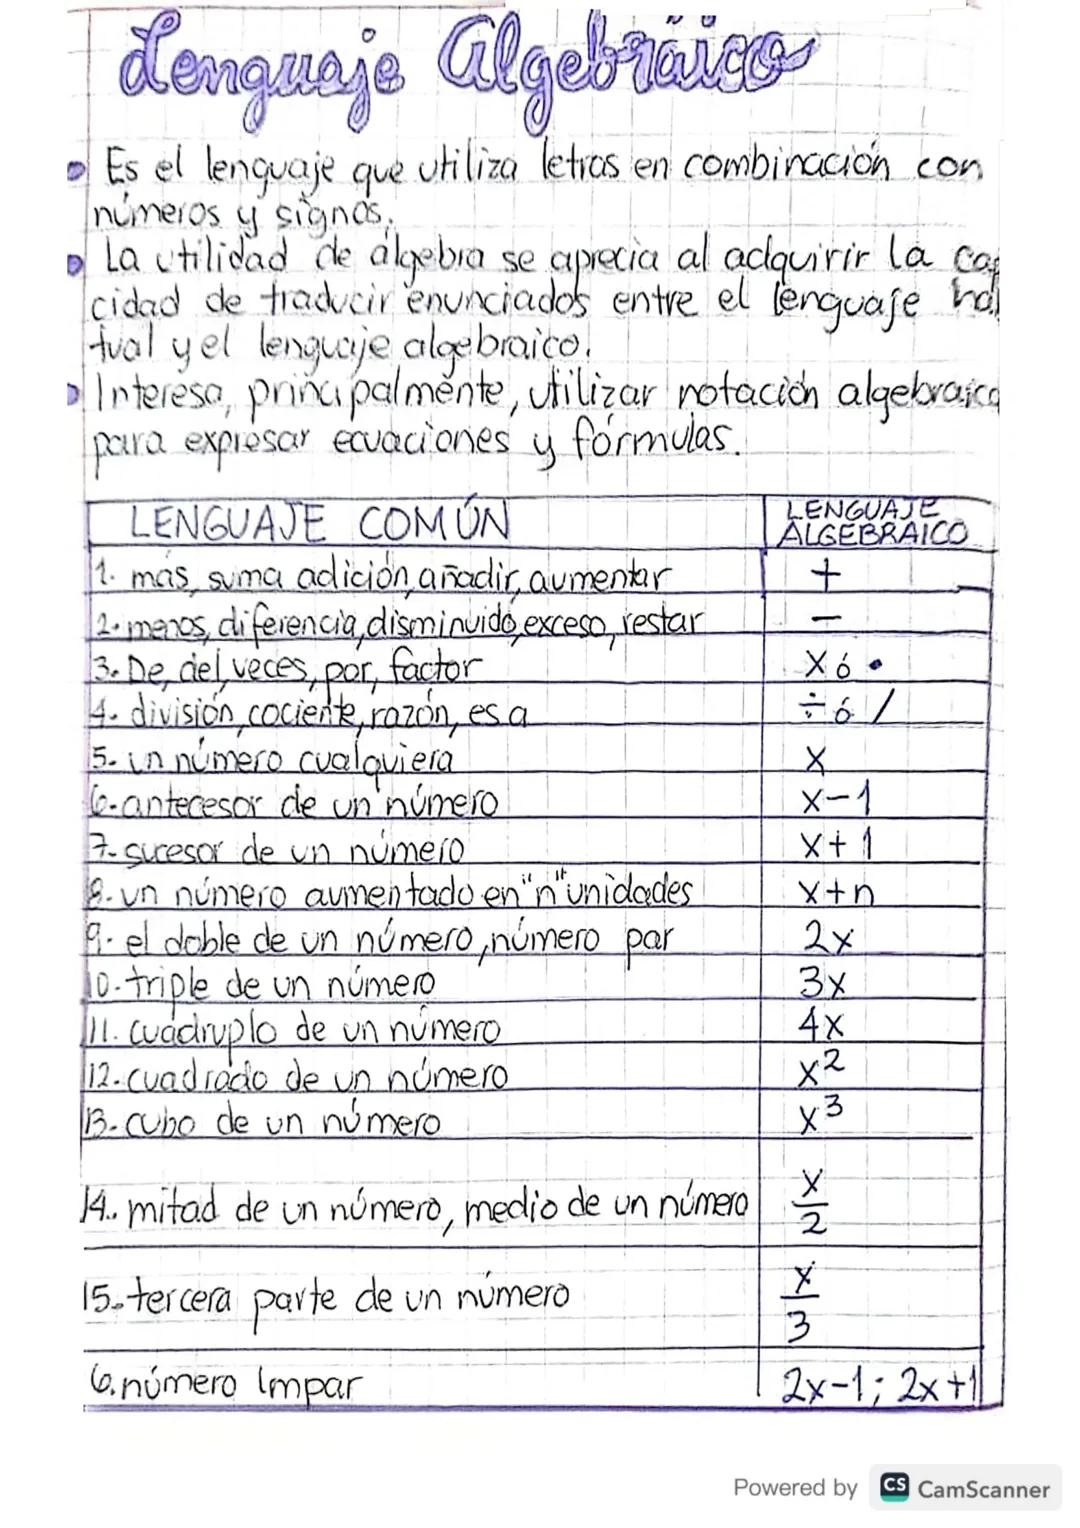 Lenguaje Algebraico
Es el lenguaje que utiliza letras en combinación con
números y signos.
La utilidad de álgebra se aprecia al adquirir la cap
cidad de traducir enunciados entre el lenguaje ha
tual y el lenguaje algebraico.
Interesa, principalmente, utilizar notación algebraica
para expresar ecuaciones y fórmulas.
LENGUAJE COMÚN LENGUAJE ALGEBRAICO
1. más, suma adición, añadir, aumentar +
2. menos, diferencia, disminuido, exceso, restar −
3. De, del, veces, por, factor X ó •
4. división, cociente, razón, es a ÷ ó /
5. un número cualquiera x
6. antecesor de un número x-1
7. sucesor de un número x+1
8. un número aumentado en "n" unidades x+n
9. el doble de un número, número par 2x
10. triple de un número 3x
11. cuádruplo de un número 4x
12. cuadrado de un número x²
13. cubo de un número x³
14. mitad de un número, medio de un número x/2
15. tercera parte de un número x/3
6. número Impar 2x-1; 2x+1
Powered by CS CamScanner